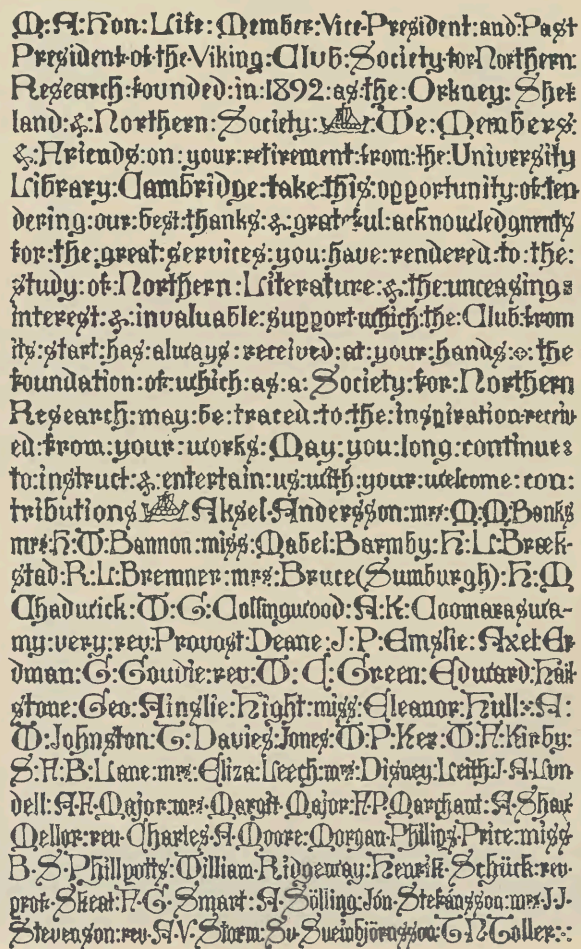 M:A:Hon:Life:Member:Vice-President:and:Past
President·of·the·Viking:Club:Society·for·Northern:
Research:founded:in:1892:as:the:Orkney:Shet
land:&:Northern:Society: We:Members:
&:Friends:on:your:retirement:from:the:University
Library:Cambridge:take:this:opportunity:of:ten
dering:our:best:thanks:&:grateful:acknowledgments
for:the:great:services:you:have:rendered:to:the:
study:of:Northern:Literature:&:the:unceasing:
interest:&:invaluable:support:which:the:Club:from
its:start:has:always:received:at:your:hands:the
foundation:of:which:as:a:Society:for:Northern
Research:may:be:traced:to:the:inspiration:receiv
ed:from:your:works:May:you:long:continue:
to:instruct:&:entertain:us:with:your:welcome:con:
tributions Aksel·Andersson:mrs:M:M:Banks
mrs:H:W:Bannon:miss:Mabel:Barmby:H:L:Bræk-
stad:R:L:Bremner:mrs:Bruce(Sumburgh):H:M
Chadwick:W:G:Collingwood:A:K:Coomaraswa-
my:very:rev:Provost:Deane:J:P:Emslie:Axel:Er
dman:G:Goudie:rev:W:C:Green:Edward:Hail
stone:Geo:Ainslie:Hight:miss:Eleanor:Hull:A:
W:Johnston:T:Davies:Jones:W:P:Ker:W:F:Kirby:
S:H:B:Lane:mrs:Eliza:Leech:mrs:Disney:Leith:J:A:Lun
dell:A:F:Major:mrs:Margt:Major:F:P:Marchant:A:Shaw
Mellor:rev:Charles:A:Moore:Morgan:Philips:Price:miss
B·S·Phillpotts:William·Ridgeway:Henrik·Schück:rev·
prof·Skeat:H·G·Smart:A·Sölling:Jón·Stefánsson:mrs·J·J·
Stevenson:rev·A·V·Storm:Sv·Sveinbjörnsson:T·N·Toller:·: